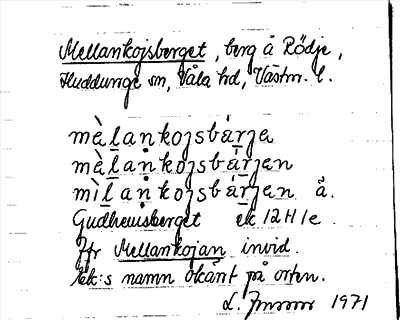 Mellankojsberget, berg å Rödje,
Huddunge sn, Våla hd, Västm. l.
mèlankojsbárja
mèlankojsbárjen
mìlankojsbárjen å.
Gudheimsberget ek 12H1e.
Jfr Mellankojan invid.
Ek:s namn okänt på orten.
L. 1971